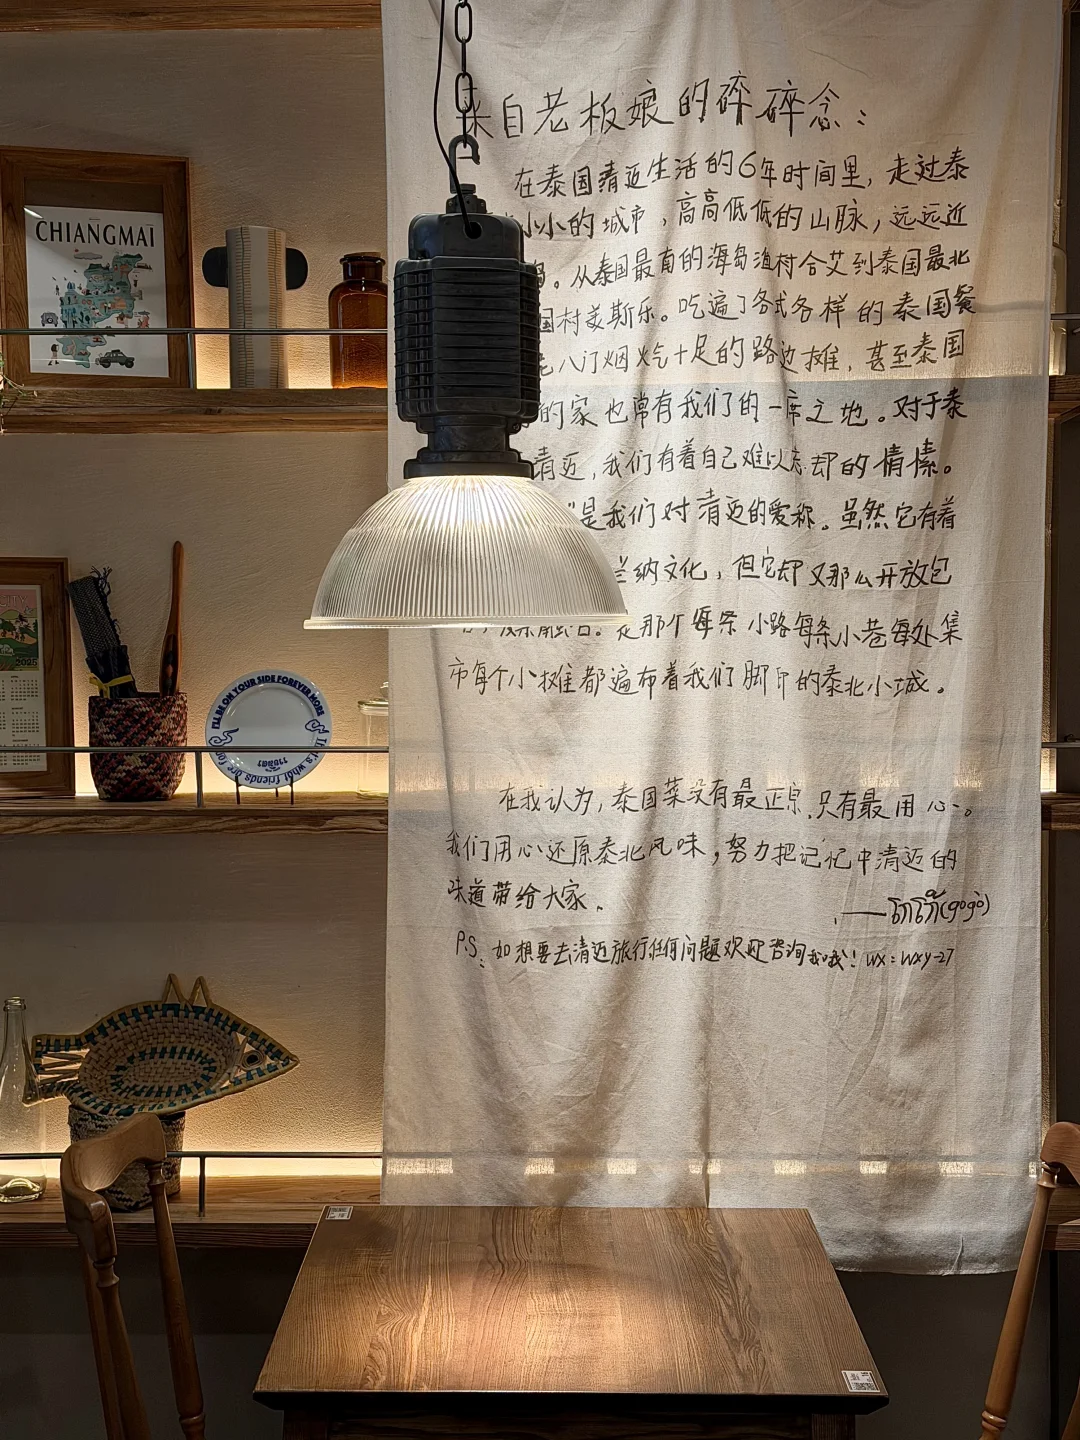 来自老板娘的碎碎念：
在泰国清迈生活的6年时间里，走过泰
小小的城市，高高低低的山脉，远远近
岛。从泰国最南的海岛渔村合艾到泰国最北
国村美斯乐。吃遍了各式各样的泰国餐
八门烟火气十足的路边摊，甚至泰国
的家也常有我们的一席之地。对于泰
清迈，我们有着自己难以忘却的情愫。
"是我们对清迈的爱称。虽然它有着
兰纳文化，但它却又那么开放包
是那个每条小路每条小巷每处集
市每个小摊都遍布着我们脚印的泰北小城。
在我认为，泰国菜没有最正宗，只有最用心。
我们用心还原泰北风味，努力把记忆中清迈的
味道带给大家、
——โกโก้(gogo)
P.S: 如想要去清迈旅行任何问题欢迎咨询我哦！wx：wxy-27
CHIANGMAI
2025
I'LL BE ON YOUR SIDE FOREVER MORE
that's what friends are for